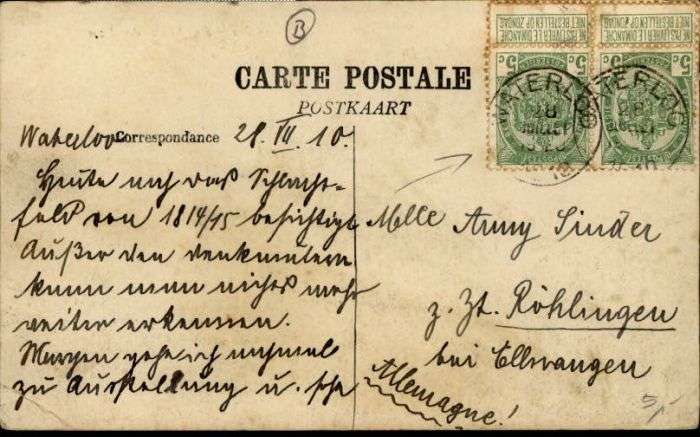 B
CARTE POSTALE
POSTKAART
Correspondance
NE PAS LIVRER LE DIMANCHE
NIET BESTELLEN OP ZONDAG
NE PAS LIVRER LE DIMANCHE
NIET BESTELLEN OP ZONDAG
5c 5c
5c 5c
WATERLOO
28
JUILLET
Waterloo 28. VII. 10.
Heute noch das Schlacht-
feld von 1814/15 besichtigt
Außer den Denkmälern
kann man nichts mehr
weiter erkennen.
Morgen gehe ich nochmal
zu Ausstellung u.
Melle Anny Sinder
z. Zt. Röhlingen
bei Ellwangen
Allemagne!
5,-